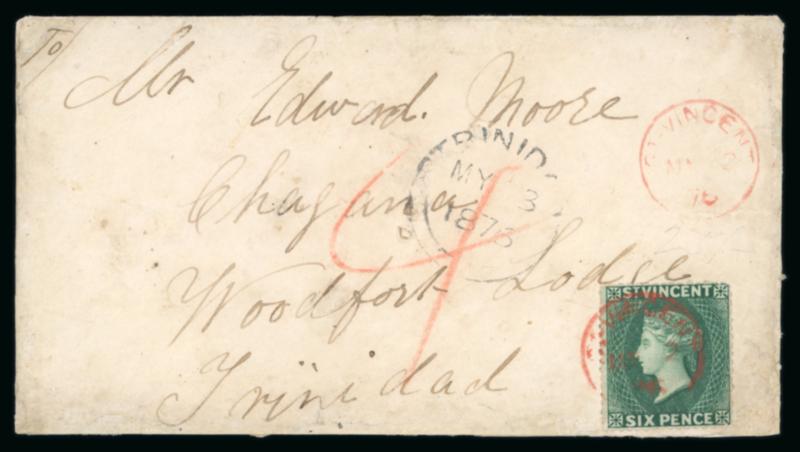 To
Mr Edward. Moore
Chaganas
Woodfort Lodge
Trinidad
TRINID
MY 3
1876
4
ST. VINCENT
76
ST. VINCENT
SIX PENCE